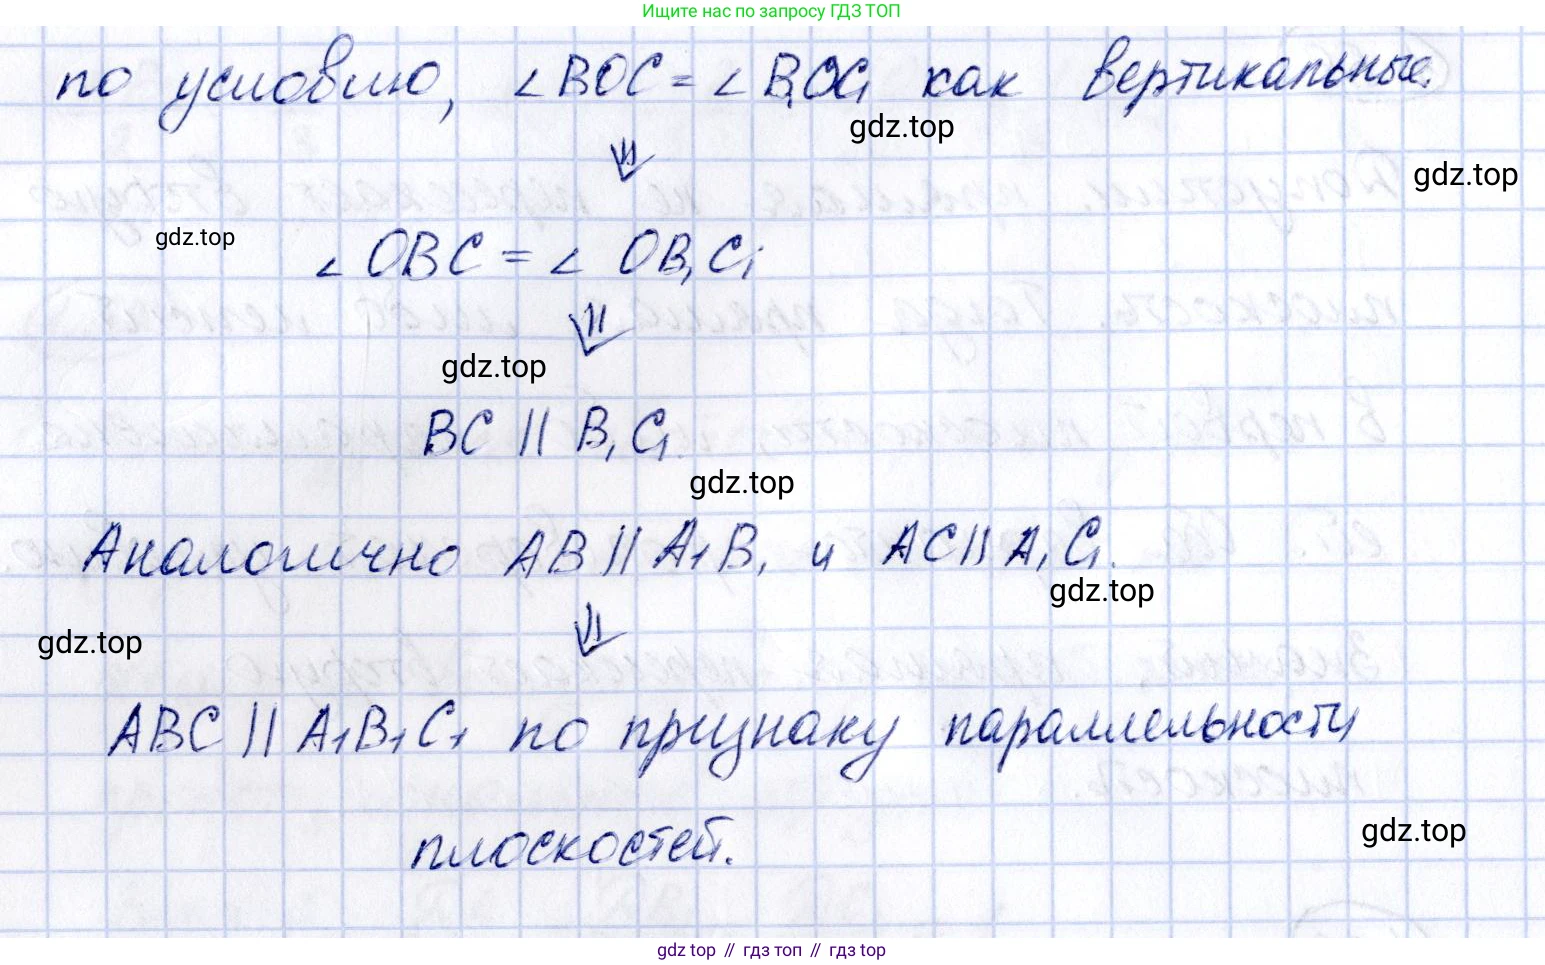 Ищите нас по запросу ГДЗ ТОП
по условию, ∠BOC = ∠B₁OC₁ как вертикальные.
gdz.top
⇓
gdz.top
gdz.top
∠OBC = ∠OB₁C₁
⇓
gdz.top
BC || B₁C₁.
gdz.top
Аналогично AB || A₁B₁ и AC || A₁C₁.
gdz.top
⇓
gdz.top
ABC || A₁B₁C₁ по признаку параллельности
плоскостей.
gdz.top
gdz top // гдз топ // gdz top